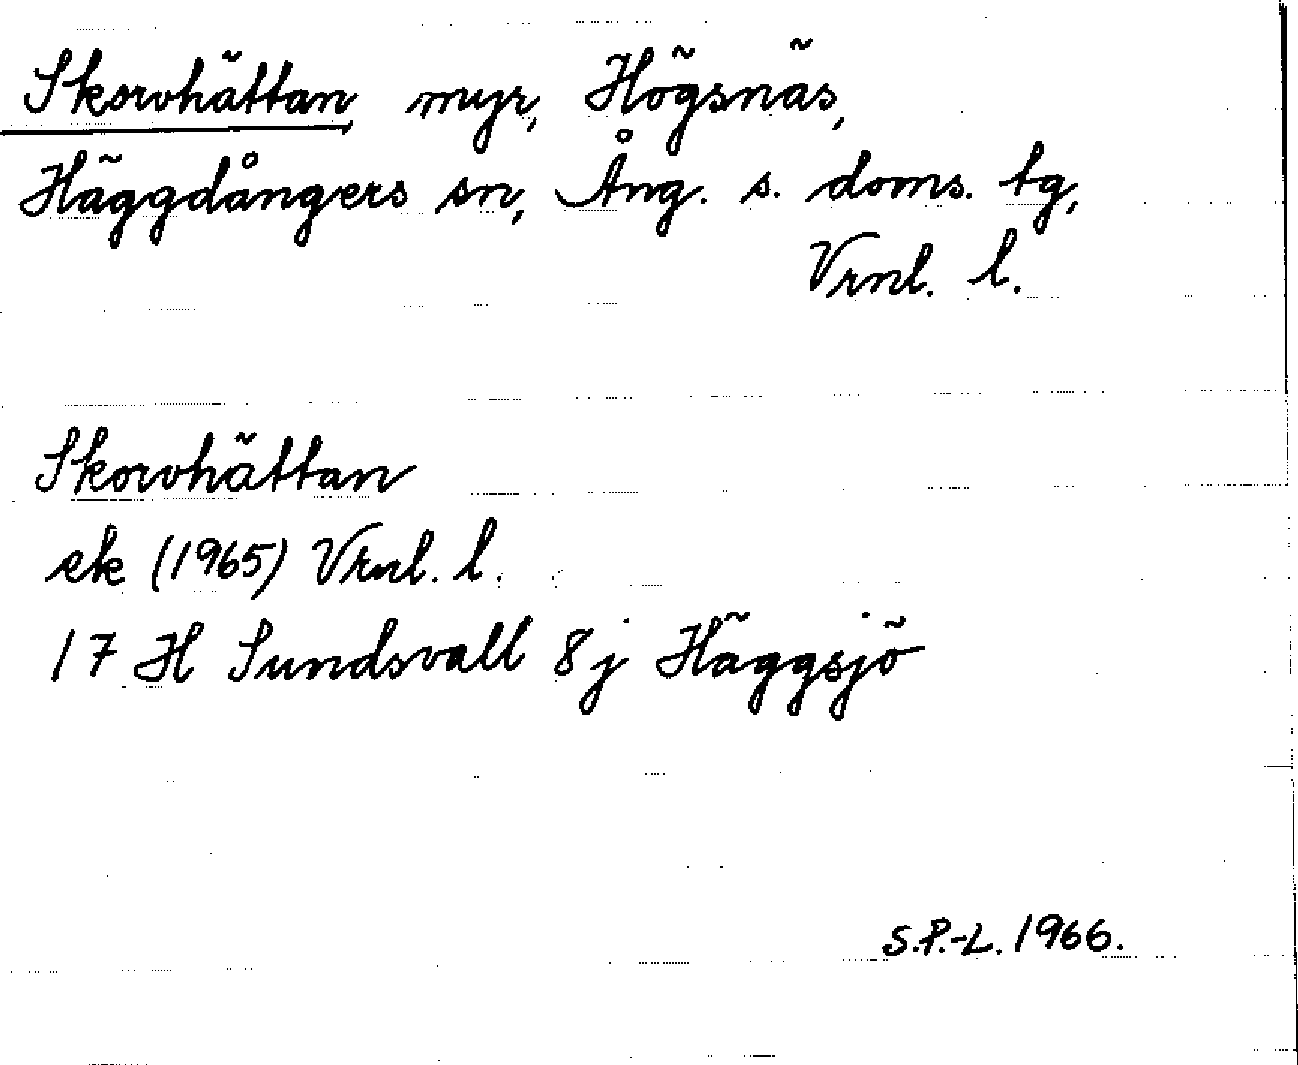 Skorvhättan, myr, Högsnäs,
Häggdångers sn, Ång. s. doms. tg,
Vrnl. l.
Skorvhättan
ek (1965) Vrnl. l.
17 H Sundsvall 8 j Häggsjö
S.P.-L. 1966.